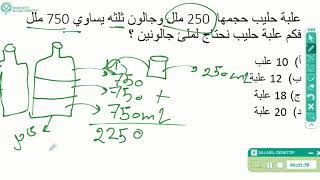 علبة حليب حجمها 250 ملل وجالون ثلثه يساوي 750 ملل
فكم علبة حليب نحتاج لملئ جالونين ؟
أ) 10 علب
ب) 12 علبة
ج) 18 علبة
د) 20 علبة
250ml
750
750 +
750ml
2250
SALABIL DESKTOP
00:01:58